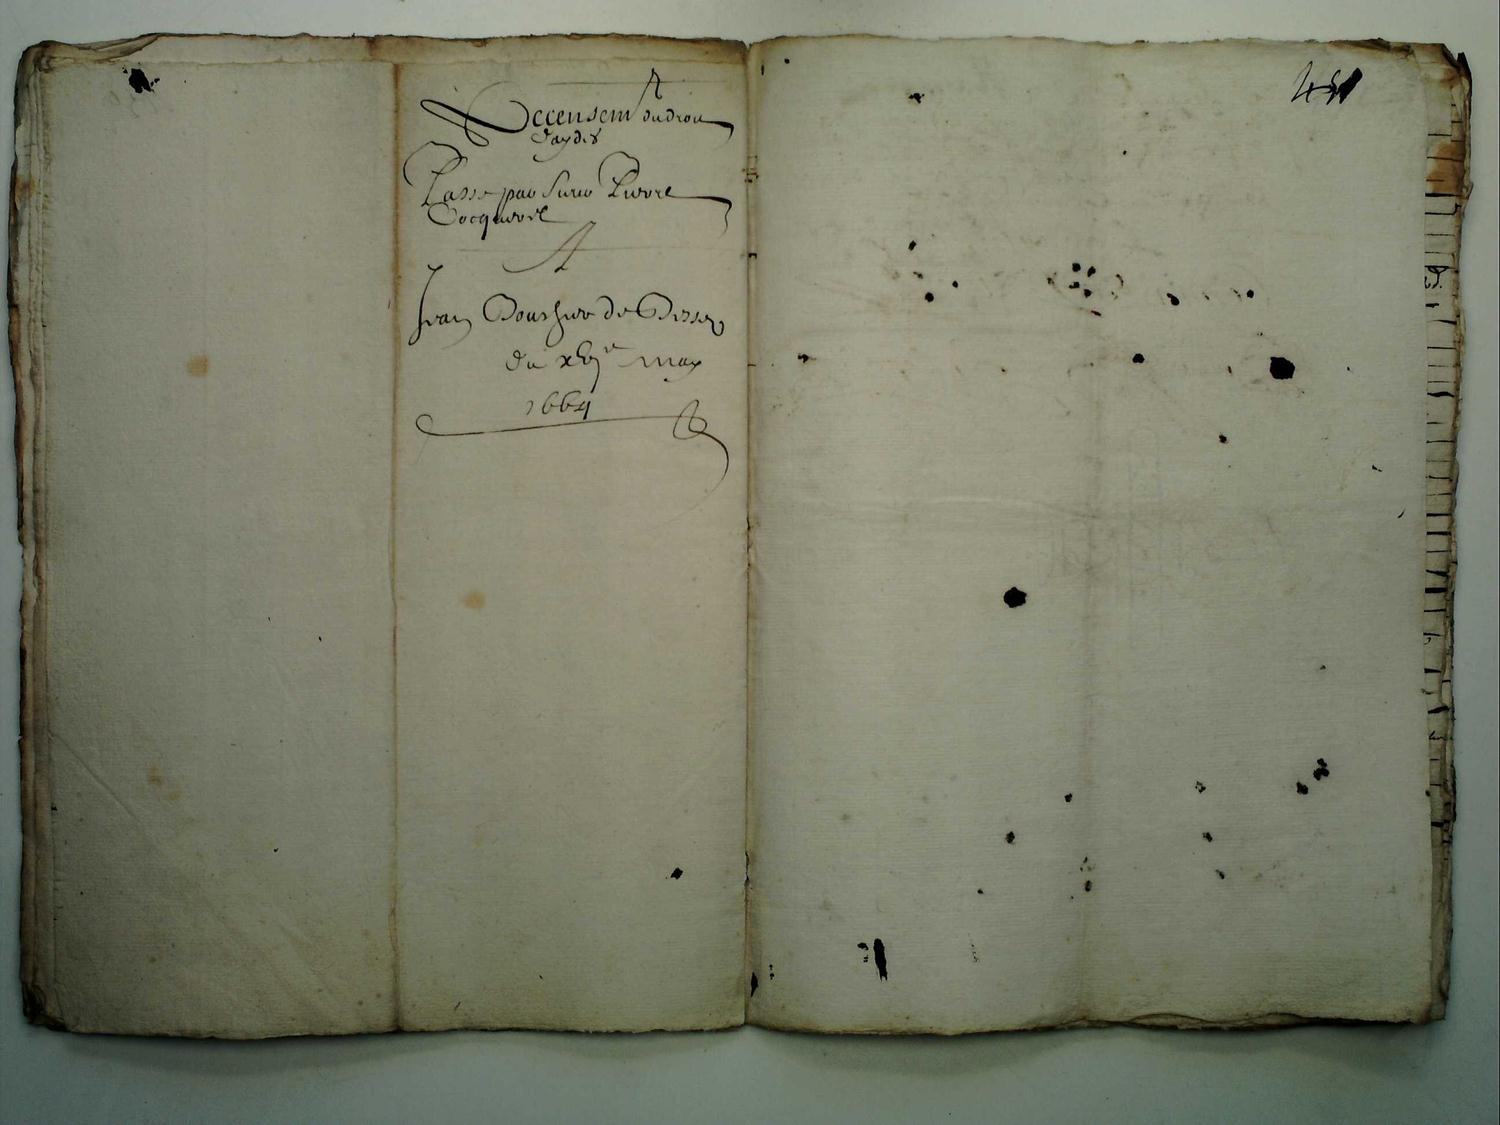 Accensemt du droit
daydes
Passe par Sieur Pierre
Cocquerel
A
Jean Boursier de
du xbje may
1664